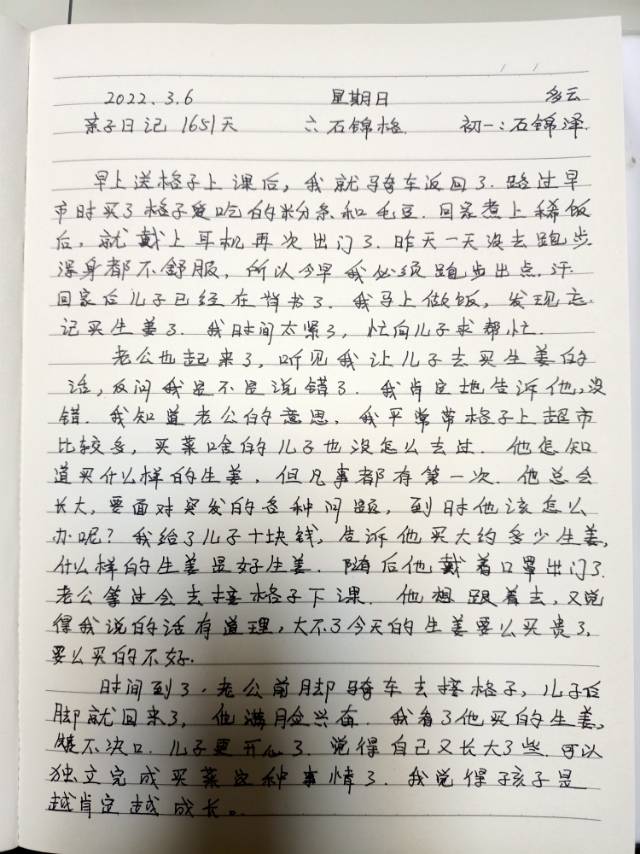 2022.3.6 星期日 多云
亲子日记 1651天 六:石锦格. 初一:石锦泽.
早上送格子上课后,我就骑车返回了.路过早
市时买了格子爱吃的粉条和毛豆.回家煮上稀饭
后,就戴上耳机再次出门了.昨天一天没去跑步
浑身都不舒服,所以今早我必须跑步出点汗.
回家后儿子已经在背书了.我马上做饭,发现忘
记买生姜了.我时间太紧了,忙向儿子求帮忙.
老公也起来了,听见我让儿子去买生姜的
话,反问我是不是说错了.我肯定地告诉他,没
错.我知道老公的意思,我平常带格子上超市
比较多,买菜啥的儿子也没怎么去过.他怎知
道买什么样的生姜,但凡事都有第一次.他总会
长大,要面对突发的各种问题,到时他该怎么
办呢?我给了儿子十块钱,告诉他买大约多少生姜,
什么样的生姜是好生姜.随后他戴着口罩出门了.
老公等过会去接格子下课.他想跟着去,又觉
得我说的话有道理,大不了今天的生姜要么买贵了,
要么买的不好.
时间到了.老公前脚骑车去接格子,儿子后
脚就回来了,他满脸兴奋.我看了他买的生姜,
赞不决口.儿子更开心了.觉得自己又长大了些.可以
独立完成买菜这种事情了.我觉得孩子是
越肯定越成长。